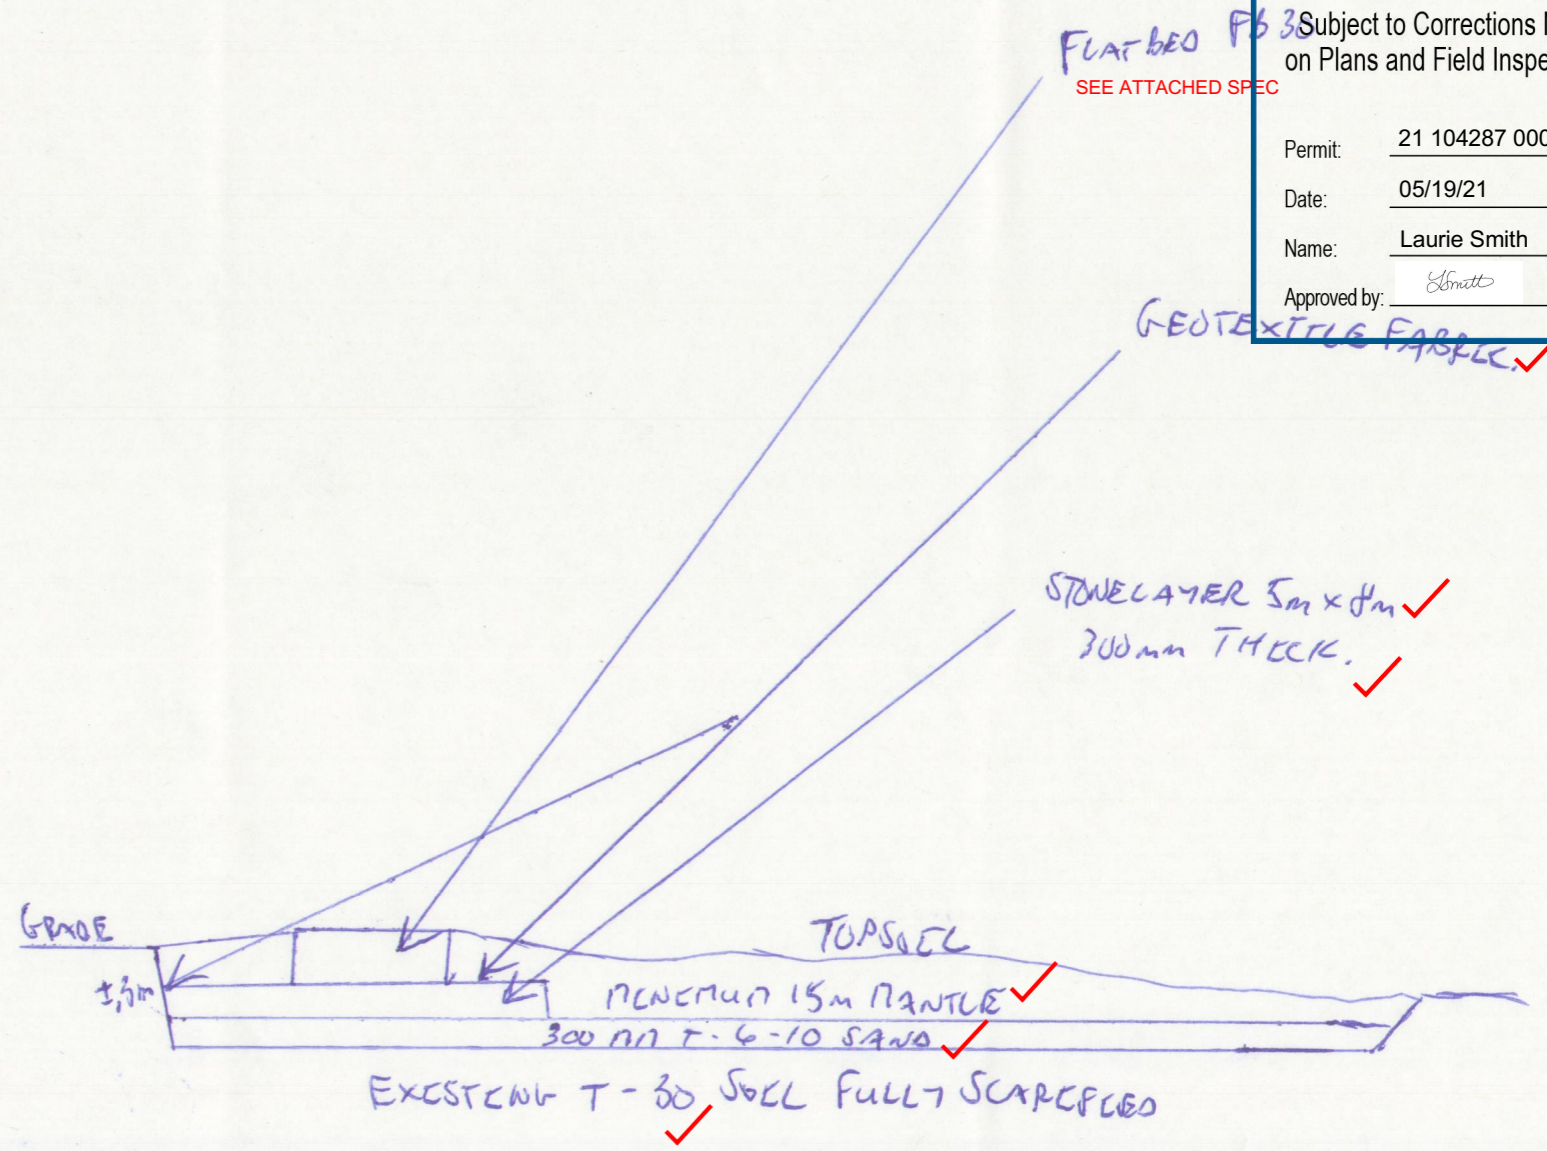 FLATBED FB 36
SEE ATTACHED SPEC
Subject to Corrections
on Plans and Field Inspe
Permit: 21 104287 000
Date: 05/19/21
Name: Laurie Smith
Approved by: LSmith
GEOTEXTILE FABRIC.
STONELAYER 5m x 8m
300mm THICK.
GRADE
TOPSOIL
±.3m
MINIMUM 15m MANTLE
300 MM T-6-10 SAND
EXISTING T-30 SOIL FULLY SCARIFIED